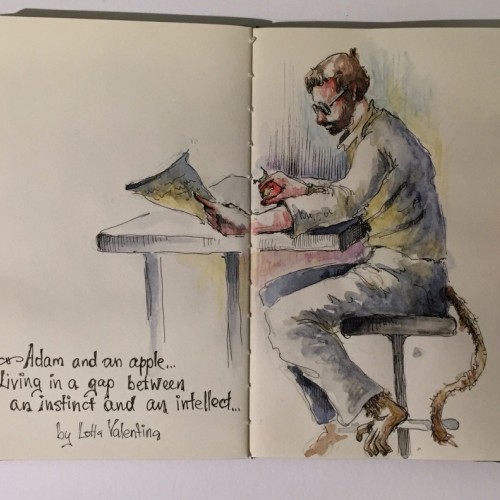 Adam and an apple...
Living in a gap between
an instinct and an intellect...
by Lotta Valentina